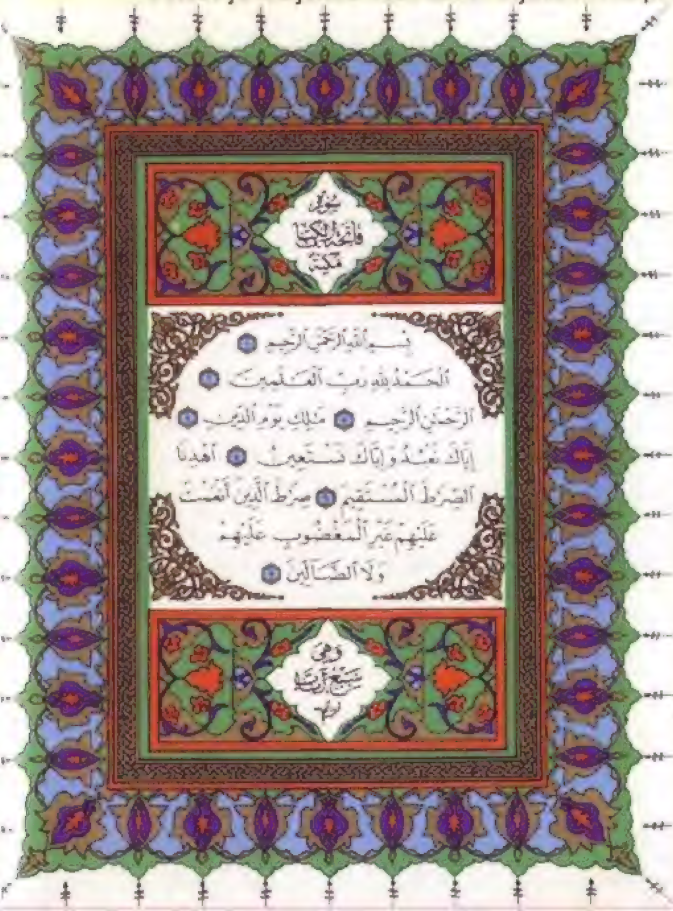 سورة
فاتحة الكتاب
مكية
بِسْمِ ٱللَّهِ ٱلرَّحْمَٰنِ ٱلرَّحِيمِ ١
ٱلْحَمْدُ لِلَّهِ رَبِّ ٱلْعَٰلَمِينَ ٢
ٱلرَّحْمَٰنِ ٱلرَّحِيمِ ٣ مَٰلِكِ يَوْمِ ٱلدِّينِ ٤
إِيَّاكَ نَعْبُدُ وَإِيَّاكَ نَسْتَعِينُ ٥ ٱهْدِنَا
ٱلصِّرَٰطَ ٱلْمُسْتَقِيمَ ٦ صِرَٰطَ ٱلَّذِينَ أَنْعَمْتَ
عَلَيْهِمْ غَيْرِ ٱلْمَغْضُوبِ عَلَيْهِمْ
وَلَا ٱلضَّآلِّينَ ٧
وهي
سبع آيات